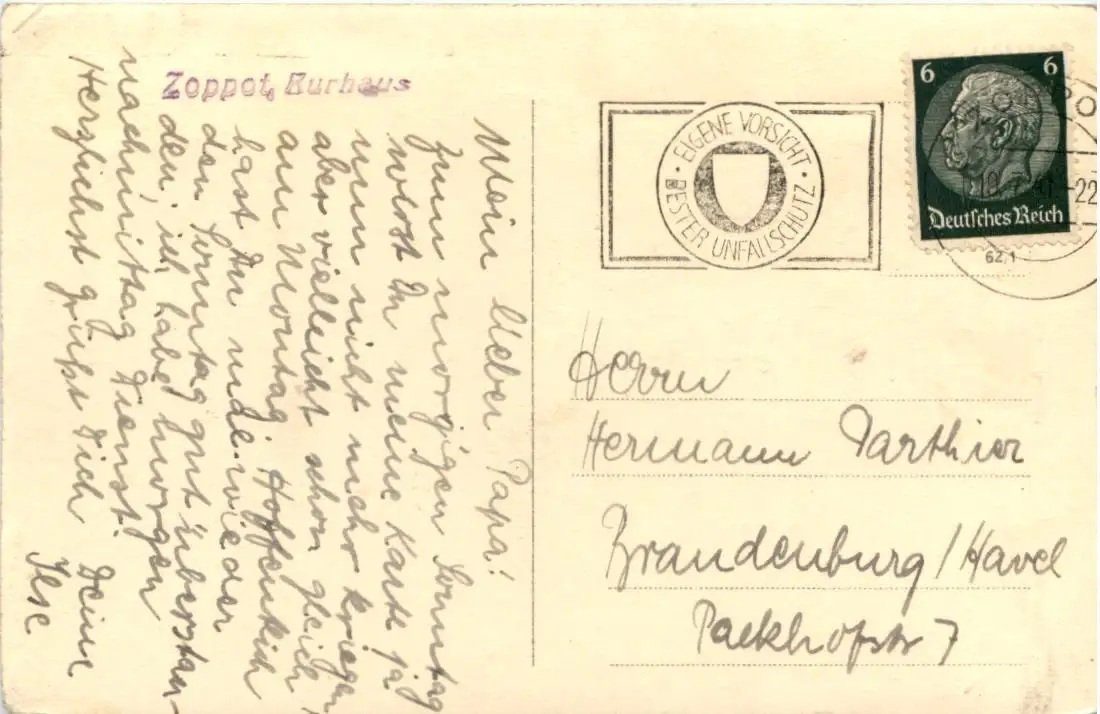 Zoppot, Kurhaus
Mein lieber Papa!
Zum morgigen Sonntag
wirst Du meine Karte ja
nun nicht mehr kriegen
aber vielleicht schon gleich
am Montag. Hoffentlich
hast Du nude wieder
den Sonntag gut überstan-
den, ich habe morgen
nachmittag Dienst.
Herzlichst grüßt Dich Deine
Ilse
· EIGENE VORSICHT ·
BESTER UNFALLSCHUTZ
6 6
Deutsches Reich
-22
62,1
Herrn
Hermann Parthier
Brandenburg/Havel
Packhofstr 7